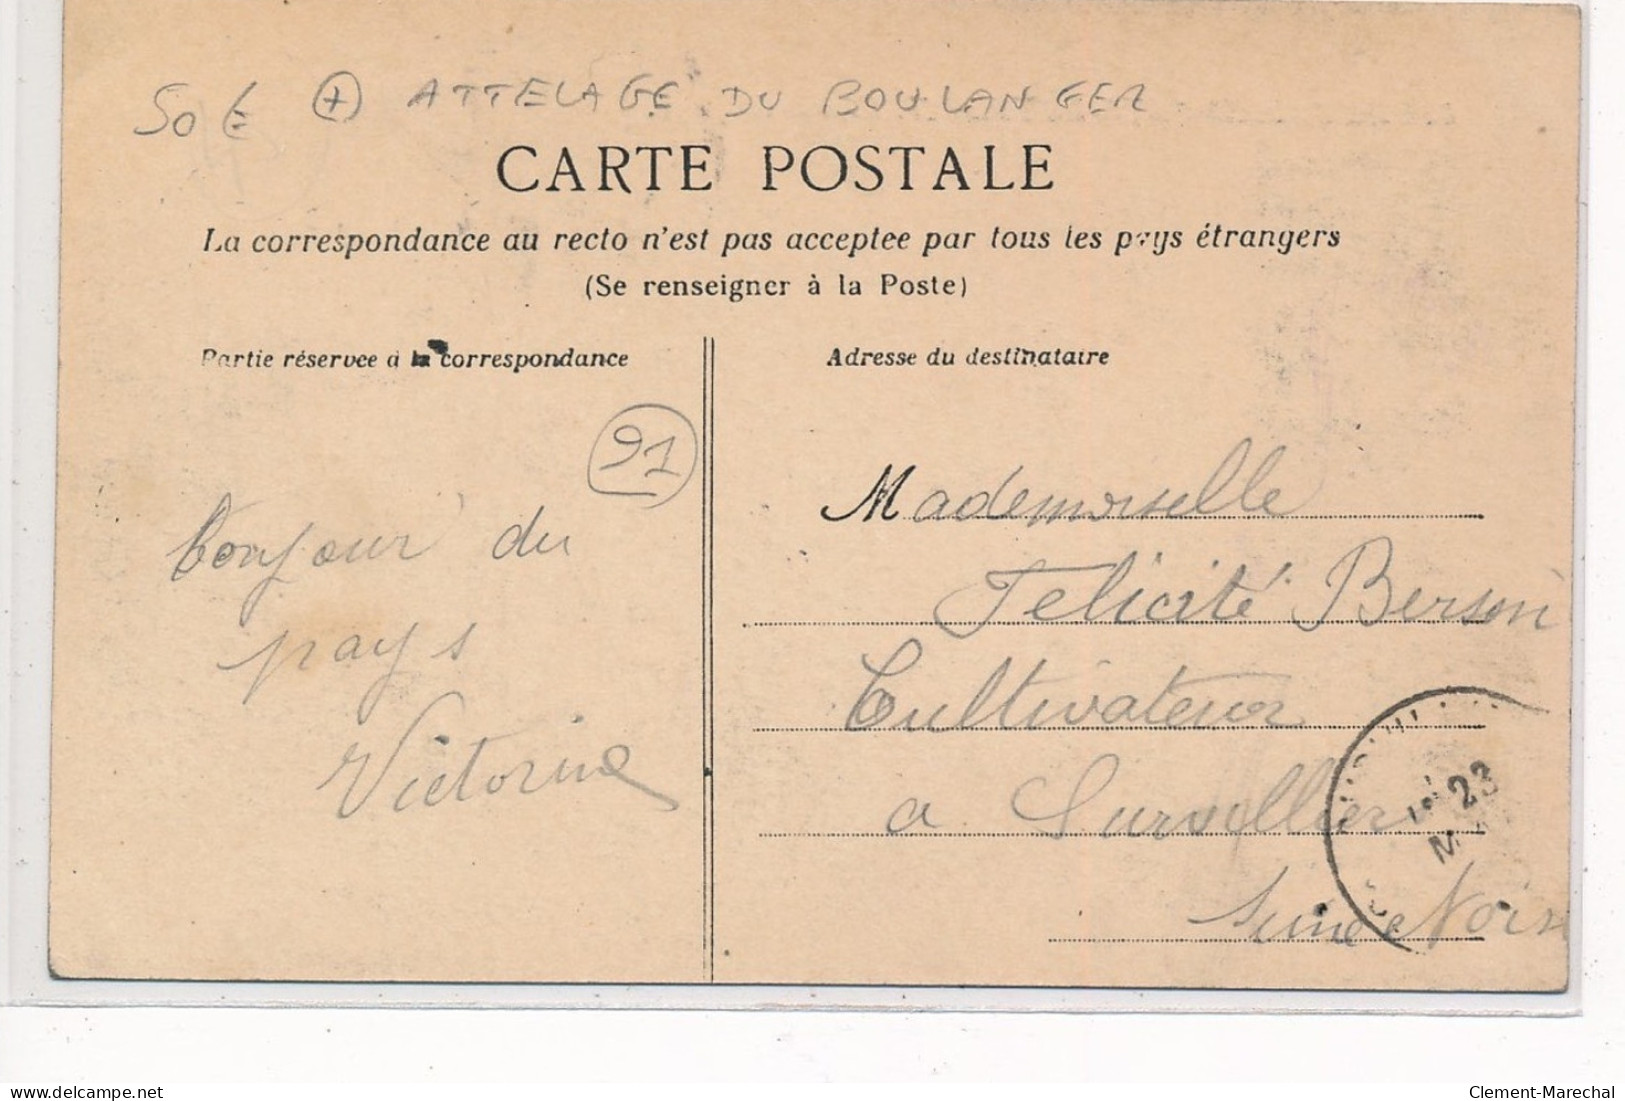 50 € + ATTELAGE DU BOULANGER
CARTE POSTALE
La correspondance au recto n'est pas acceptee par tous les pays étrangers
(Se renseigner à la Poste)
Partie réservee à la correspondance
Adresse du destinataire
91
Mademoiselle
bonjour du
Felicité Berson
pays
Cultivateur
Victorine
a Survellier
23
M
Seine
Delcampe.net
Clement-Marechal